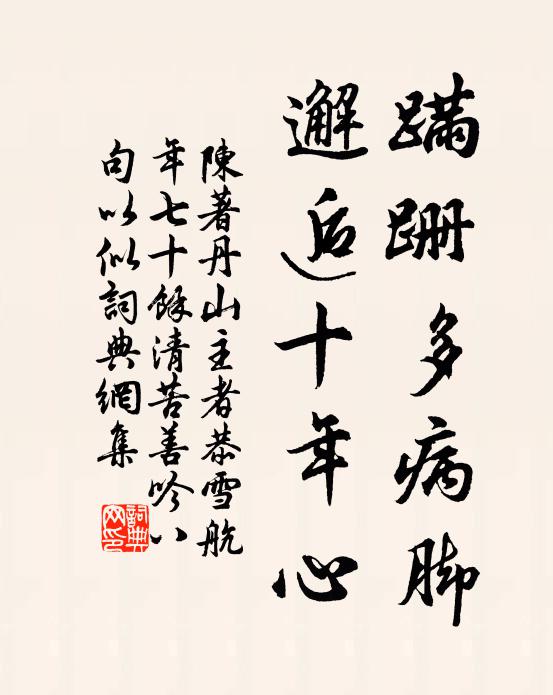 蹣跚多病脚
邂逅十年心
陳著丹山主者恭雪航
年七十餘清苦善吟八
句以似詞典網集
詞典網印